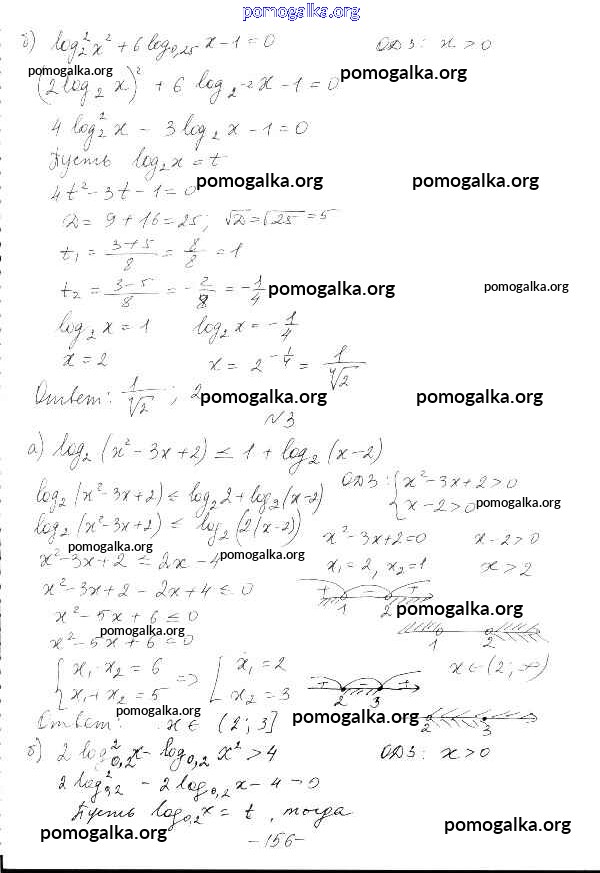 pomogalka.org
б) log₂²x² + 6 log₀,₂₅ x - 1 = 0 ОДЗ: x > 0
pomogalka.org pomogalka.org
(2 log₂ x)² + 6 log₂-2 x - 1 = 0
4 log₂² x - 3 log₂ x - 1 = 0
Пусть log₂ x = t
4t² - 3t - 1 = 0 pomogalka.org pomogalka.org
D = 9 + 16 = 25; √D = √25 = 5
t₁ = (3+5)/8 = 8/8 = 1
t₂ = (3-5)/8 = -2/8 = -1/4 pomogalka.org pomogalka.org
log₂ x = 1 log₂ x = -1/4
x = 2 x = 2^(-1/4) = 1/⁴√2
Ответ: 1/⁴√2 ; 2 pomogalka.org pomogalka.org
N3
а) log₂ (x² - 3x + 2) ≤ 1 + log₂ (x - 2)
log₂ (x² - 3x + 2) ≤ log₂ 2 + log₂ (x - 2) ОДЗ: { x² - 3x + 2 > 0
x - 2 > 0 pomogalka.org
log₂ (x² - 3x + 2) ≤ log₂ (2(x - 2)) x² - 3x + 2 = 0 x - 2 > 0
pomogalka.org pomogalka.org
x² - 3x + 2 ≤ 2x - 4 x₁ = 2, x₂ = 1 x > 2
x² - 3x + 2 - 2x + 4 ≤ 0 + - +
1 2 pomogalka.org
x² - 5x + 6 ≤ 0
pomogalka.org 1 2
x² - 5x + 6 = 0
{ x₁ · x₂ = 6 => { x₁ = 2 + - +
x₁ + x₂ = 5 x₂ = 3 2 3
pomogalka.org pomogalka.org
Ответ: x ∈ (2; 3] 2 3
б) 2 log₀,₂² x - log₀,₂ x² > 4 ОДЗ: x > 0
2 log₀,₂² - 2 log₀,₂ x - 4 > 0
Пусть log₀,₂ x = t, тогда
pomogalka.org pomogalka.org
- 156 -